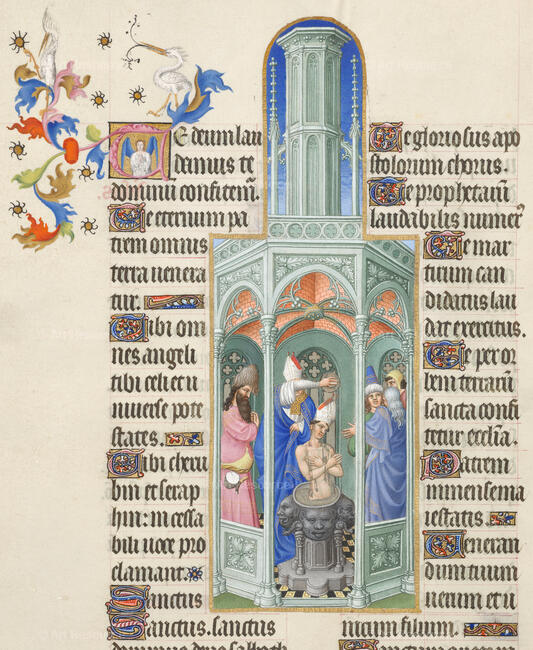 Te deum lau
damus te
dominū confitem̄.
Te eternum pa
trem omnis
terra venera
tur.
Tibi om
nes angeli
tibi celi et u
niverse pote
states.
Tibi cheru
bin et serap
hin: incessa
bili voce pro
clamant.
Sanctus
Sanctus. sanctus
dominus deus sabaoth
Te gloriosus apo
stolorum chorus.
Te prophetarū
laudabilis numer'
Te mar
tirum can
didatus lau
dat exercitus.
Te per or
bem terrarū
sancta confi
tetur eccl̄ia.
Patrem
immense ma
iestatis.
Veneran
dum tuum
verum et u
nicum filium.
Sanctum